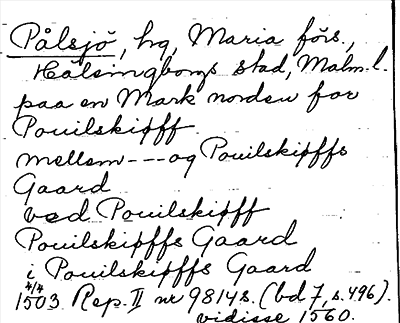 Pålsjö, hg, Maria förs.,
Hälsingborgs stad, Malm.l.
paa en Mark norden for
Pouilskiøff
mellem---og Pouilskiøffs
Gaard
ved Pouilskiøff
Pouilskiøffs Gaard
i Pouilskiøffs Gaard
4/4
1503 Rep. II nr 9814 s. (bd 7, s. 496).
vidisse 1560.